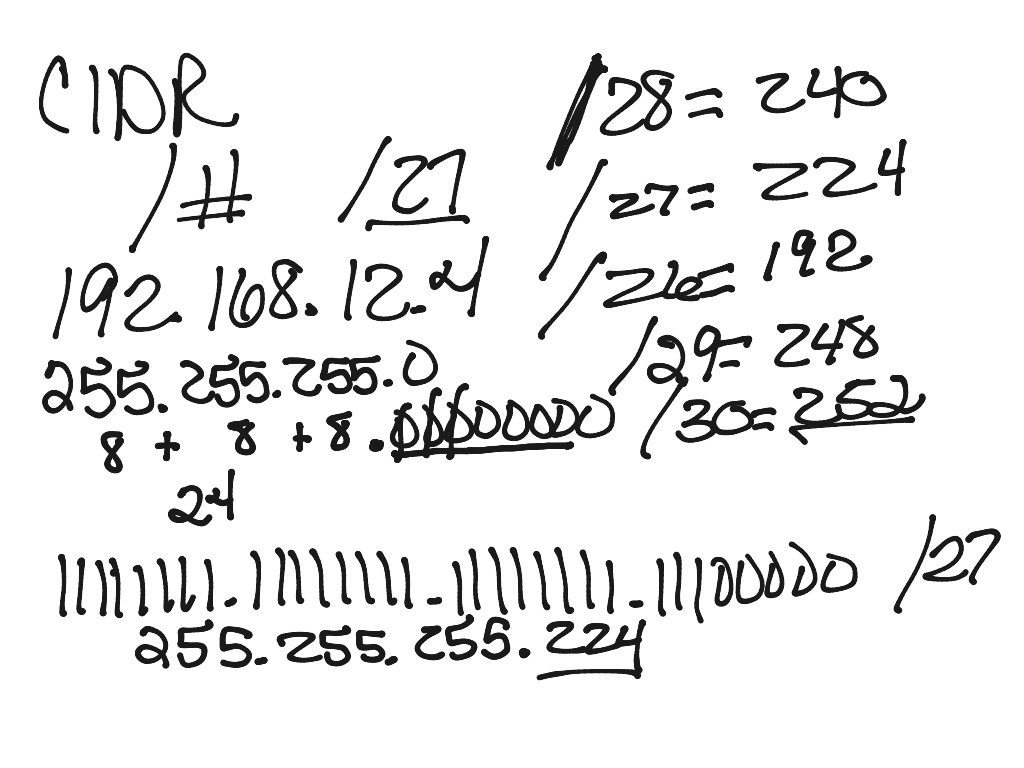 CIDR
/# /27
192.168.12.4
255.255.255.0
8 + 8 + 8 .00000000
24
/28 = 240
/27 = 224
/26 = 192
/29 = 248
/30 = 252
11111111.11111111.11111111.11100000 /27
255.255.255.224